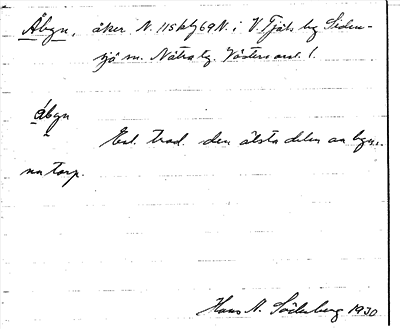 Åbyn, åker N. 115 kbf 69 N. i V. Fjäls by Siden-
sjö sn. Nätra tg. Västern. l.
åbyn
Enl. trad. den älsta delen av byn.
torp.
Hans N. Söderberg 1930